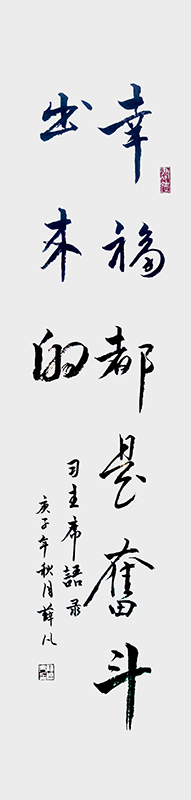 幸福都是奮斗
出来的
司主席語录
庚子年秋月薛凡